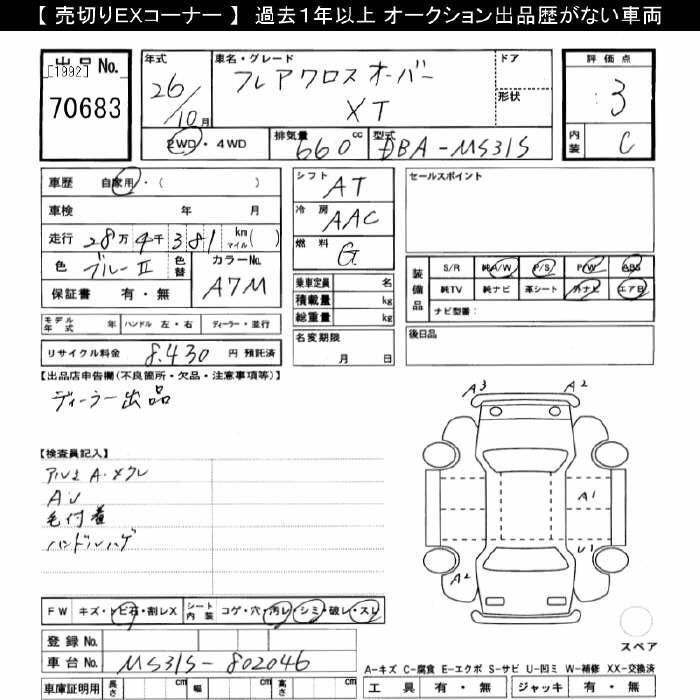 【 売切りEXコーナー 】 過去１年以上 オークション出品歴がない車両
出品 No.
[1992]
70683
年式
26/10月
車名・グレード
フレアクロスオーバー
XT
ドア
形状
評価点
3
内装
C
2WD・4WD
排気量
660cc
型式
DBA-MS31S
車歴 自家用・( )
車検 年 月
走行 28万4千381 km マイル( )
色 ブルーII 色替
カラーNo.
A7M
保証書 有・無
シフト AT
冷房 AAC
燃料 G
セールスポイント
乗車定員 名
積載量 kg
総重量 kg
装備品
S/R 純A/W P/S P/W ABS
純TV 純ナビ 革シート 外ナビ エアB
ナビ型番：
モデル年式 年 ハンドル 左・右 ディーラー・並行
リサイクル料金 8,430 円 預託済
名変期限
月 日
後日品
【出品店申告欄(不良箇所・欠品・注意事項等)】
ディーラー出品
【検査員記入】
アルミ A・メクレ
AU
毛付着
ハンドルハゲ
A3
A2
A1
U1
A2
FW キズ・トビ石・割レX
シート内装 コゲ・穴・汚レ・シミ・破レ・スレ
登録 No.
車台 No. MS31S-802046
車庫証明用 長さ cm 幅 cm 高さ cm
スペア
A-キズ C-腐食 E-エクボ S-サビ U-凹ミ W-補修 XX-交換済
工具 有・無 ジャッキ 有・無